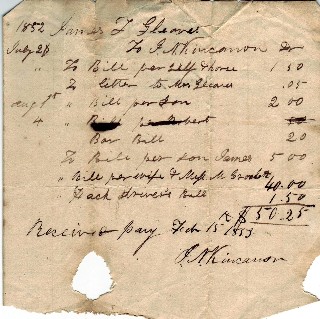 1852 James T Gleaves
July 28 To J A Kincanon Dr
" To Bill per self & horse 1.50
" To Letter to Mrs Gleaves .05
Aug 1st " Bill per Son 2.00
4 " Bill per
Bar Bill 20
To Bill per son James 5.00
" Bill per wife & Miss M 40.00
" Hack driver's Bill 1.50
$50.25
Received pay Feb 15 1853
J A Kincanon